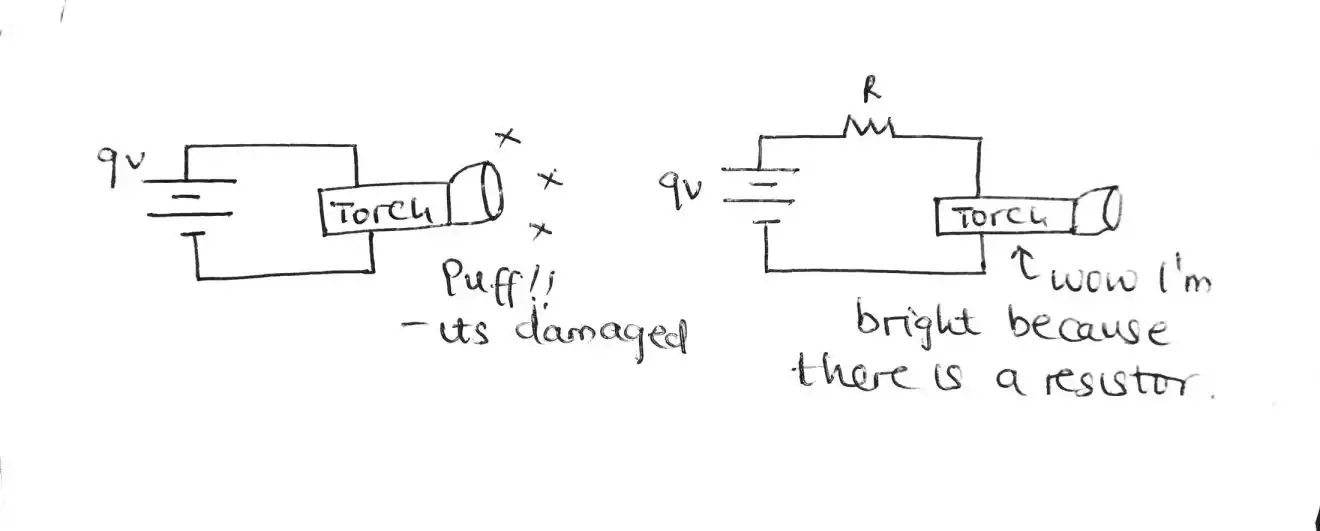 R
9v
Torch
Puff!!
-its damaged
9v
Torch
wow I'm
bright because
there is a resistor.